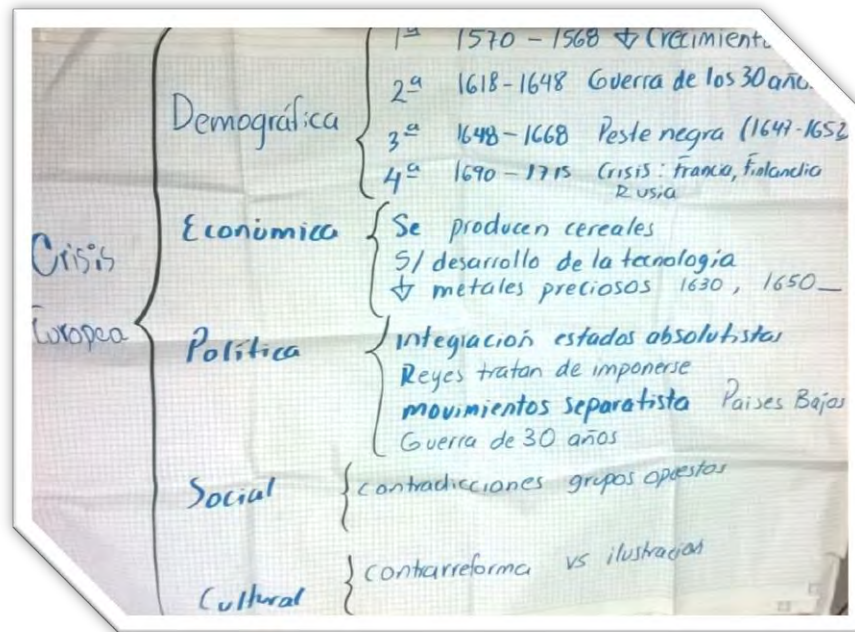 1ª 1570 - 1568 ↓ Crecimiento
Demográfica
2ª 1618 - 1648 Guerra de los 30 año
3ª 1648 - 1668 Peste negra (1647-1652
4ª 1690 - 1715 Crisis: Francia, Finlandia
Rusia
Crisis
Europea
Económica
Se producen cereales
S/ desarrollo de la tecnología
↓ metales preciosos 1630, 1650_
Política
integración estados absolutistas
Reyes tratan de imponerse
movimientos separatista Paises Bajos
Guerra de 30 años
Social
contradicciones grupos opuestos
Cultural
contrarreforma vs ilustracion